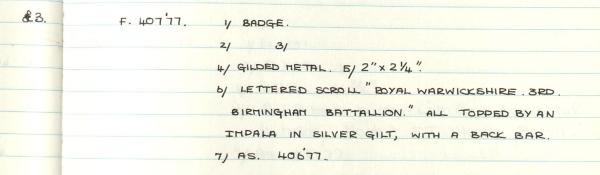 23. F. 407'77. 1/ BADGE.
2/ 3/
4/ GILDED METAL. 5/ 2" x 2 1/4".
6/ LETTERED SCROLL "ROYAL WARWICKSHIRE. 3RD.
BIRMINGHAM BATTALION." ALL TOPPED BY AN
IMPALA IN SILVER GILT, WITH A BACK BAR.
7/ AS. 406'77.